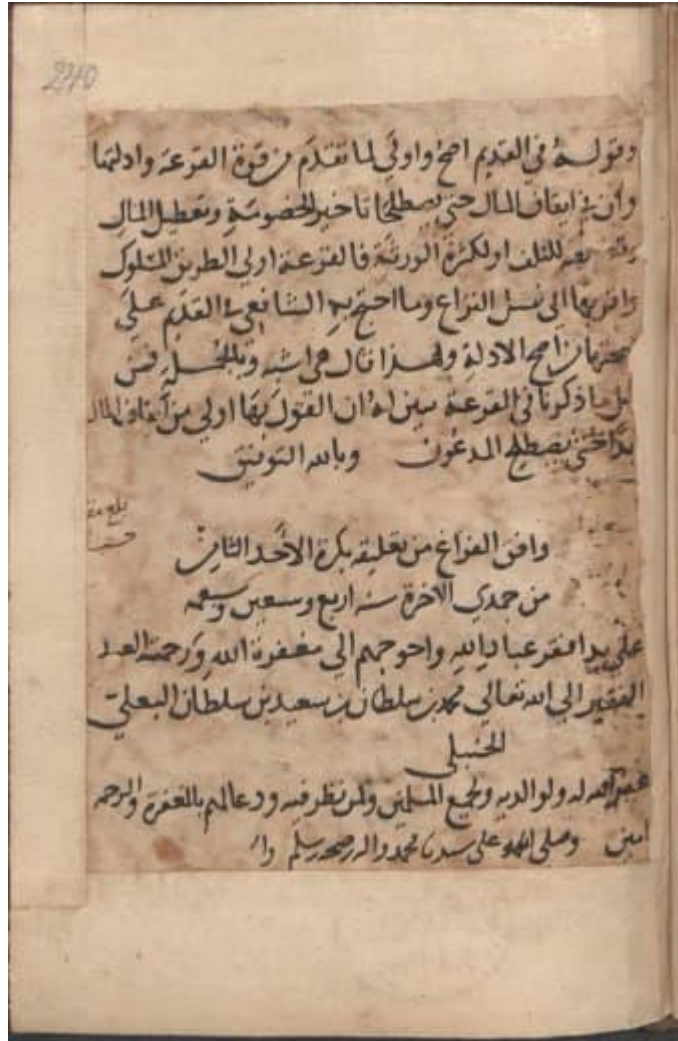 2240
وقوله في القديم اصح واولي لما تقدم من قوة القرعة وادلتها
وان في ايقاف المال حتى يصطلحا تاخير الخصومة وتعطيل المال
للتلف او لكثرة الورثة فالقرعة اولي الطرق للسلوك
واقربها الى فصل النزاع وما احتج به الشافعي في القديم علي
صحتها من اصح الادلة ولهذا قال هي اشبه وبالجملة فمن
تامل ما ذكرنا في القرعة تبين له ان القول بها اولي من ايقاف المال
ابدا حتى يصطلح المدعون وبالله التوفيق
بلغ
وافق الفراغ من تعليقه بكرة الاحد الثامن
من جمدي الاخرة سنه اربع وسبعين وسبعمه
علي يد افقر عباد الله واحوجهم الي مغفرة الله ورحمته العبد
الفقير الي الله تعالي محمد بن سلطان بن سعيد بن سلطان البعلي
الحنبلي
غفر الله له ولوالديه ولجميع المسلمين ولمن نظر فيه ودعا لهم بالمغفرة والرحمه
امين وصلى الله على سيدنا محمد واله وصحبه وسلم